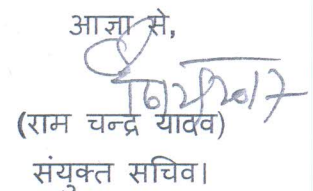 आज्ञा से,
(राम चन्द्र यादव)
संयुक्त सचिव।